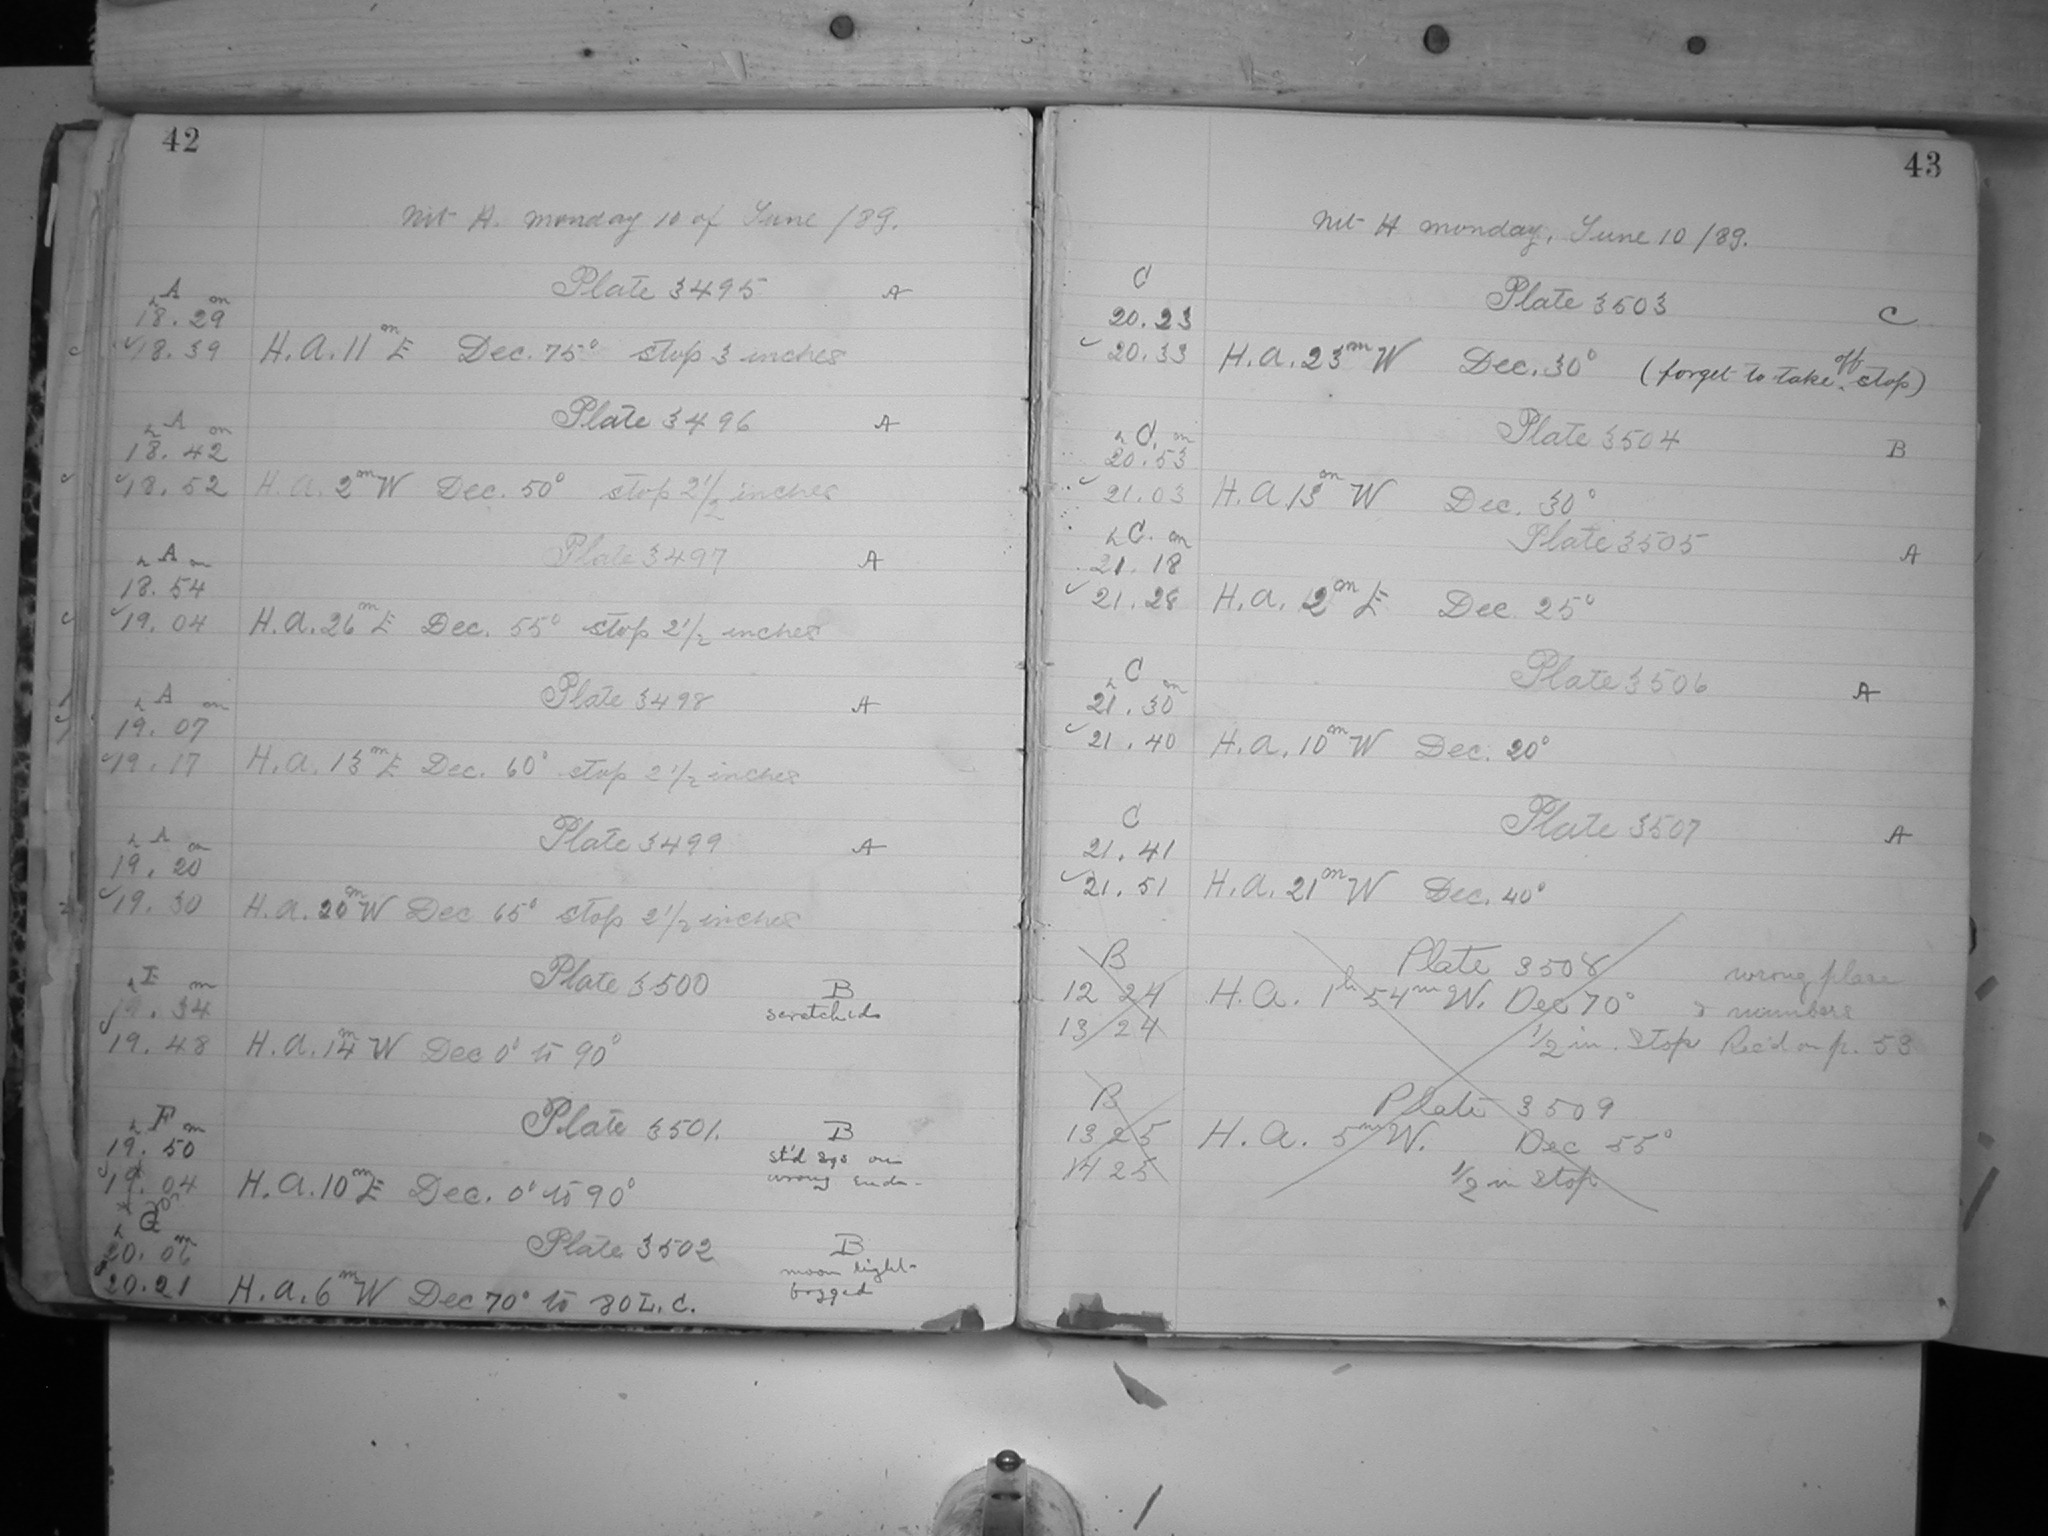 42
Nit A. monday 10 of June /89.
A
Plate 3495 A
h m
18.29
18.39 H.A. 11m E Dec. 75° stop 3 inches
A
Plate 3496 A
h m
18.42
18.52 H.A. 2m W Dec. 50° stop 2 1/2 inches
A
Plate 3497 A
h m
18.54
19.04 H.A. 26m E Dec. 55° stop 2 1/2 inches
A
Plate 3498 A
h m
19.07
19.17 H.A. 13m E Dec. 60° stop 2 1/2 inches
A
Plate 3499 A
h m
19.20
19.30 H.A. 20m W Dec 65° stop 2 1/2 inches
E
Plate 3500 B
h m
19.34 scratched
19.48 H.A. 14m W Dec 0° to 90°
F
Plate 3501. B
h m
19.50 st'd on
wrong
19.04 H.A. 10m E Dec. 0° to 90°
h m
Plate 3502 B
20.06 moon light
fogged
20.21 H.A. 6m W Dec 70° to 80 L.C.
43
Nit A monday, June 10/89.
C
Plate 3503 C
20.23
20.33 H.A. 23m W Dec. 30° (forget to take off stop)
C.
Plate 3504 B
h m
20.53
21.03 H.A. 13m W Dec. 30°
C.
Plate 3505 A
h m
21.18
21.28 H.A. 2m E Dec. 25°
C
Plate 3506 A
h m
21.30
21.40 H.A. 10m W Dec. 20°
C
Plate 3507 A
21.41
21.51 H.A. 21m W Dec. 40°
B Plate 3508 wrong place
12 24 H.A. 1h 54m W. Dec 70° & numbers
13 24 1/2 in. Stop Rec'd on p. 53
B Plate 3509
13 25 H.A. 5m W. Dec 55°
14 25 1/2 in Stop